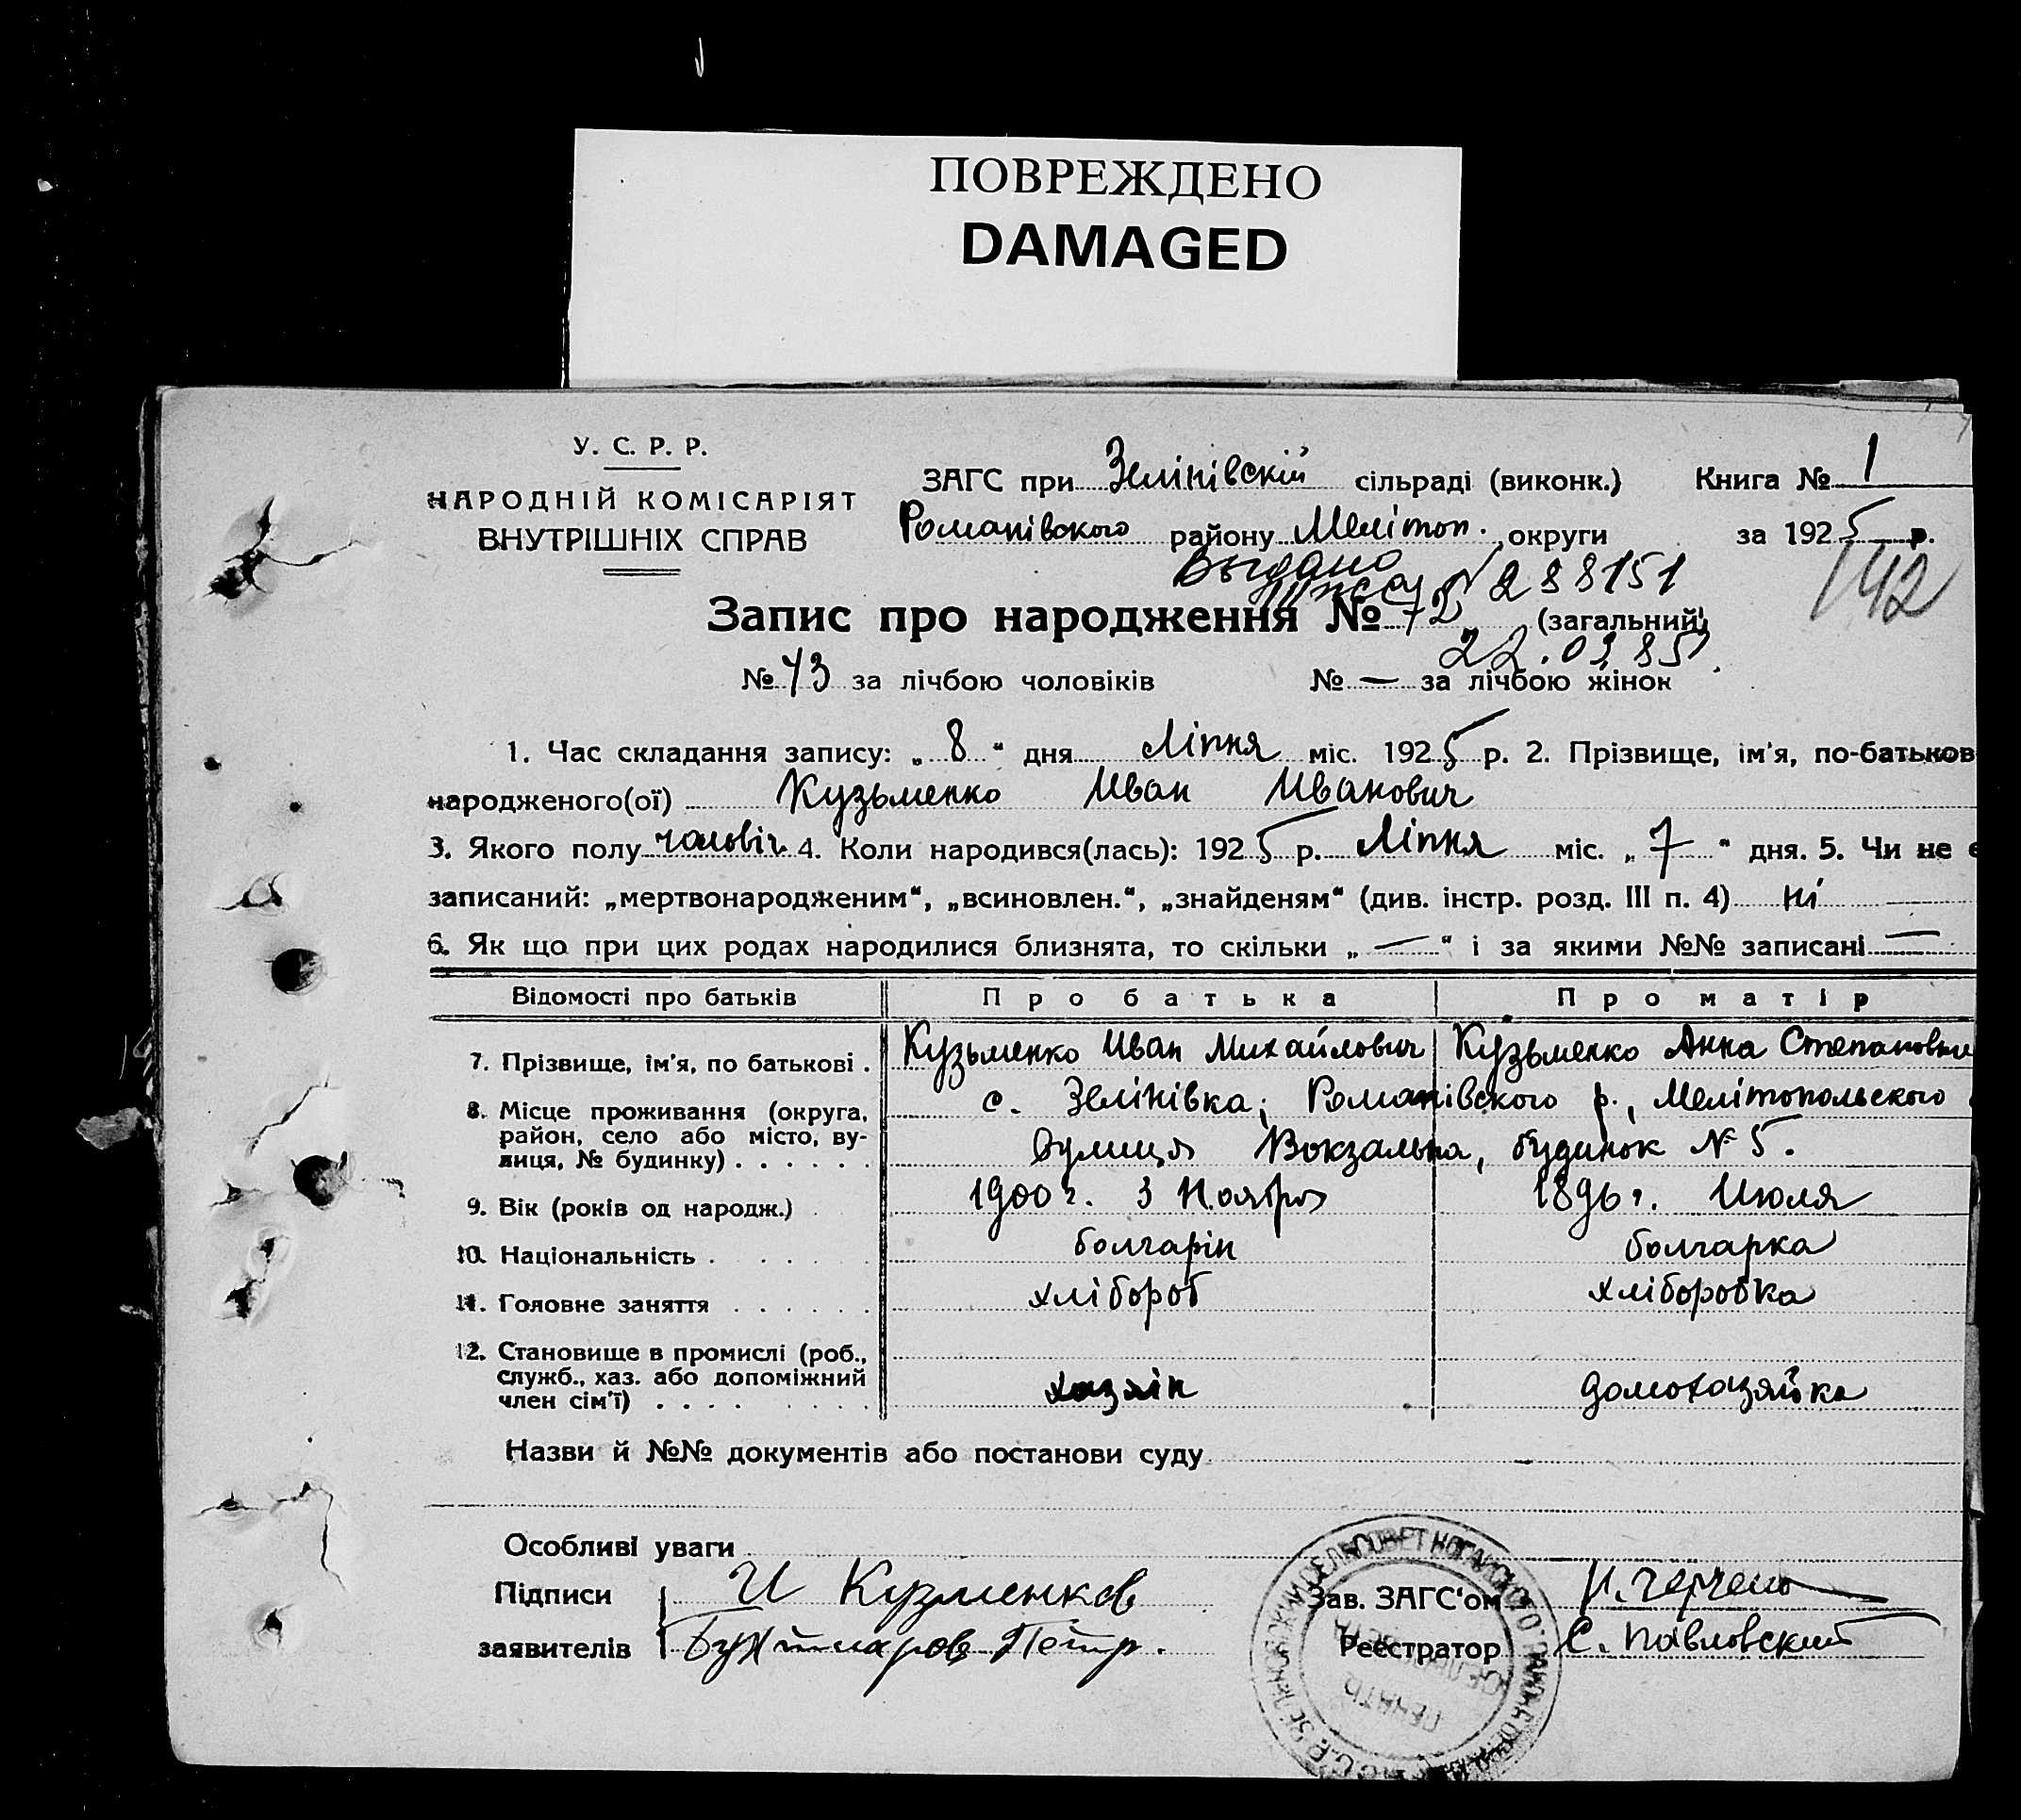 ПОВРЕЖДЕНО
DAMAGED
У. С. Р. Р.
НАРОДНІЙ КОМІСАРІЯТ
ВНУТРІШНІХ СПРАВ
ЗАГС при Зелінівскій сільраді (виконк.) Книга № 1
Романівского району Мелітоп. округи за 1925 р.
Выдано 288151
142
Запис про народження № 72 (загальний)
22.03.85
№ 43 за лічбою чоловіків № — за лічбою жінок
1. Час складання запису: „8“ дня Ліпня міс. 1925 р. 2. Прізвище, ім'я, по-батьков
народженого(ої) Кузьменко Иван Иванович
3. Якого полу чоловіч. 4. Коли народився(лась): 1925 р. Ліпня міс. „7“ дня. 5. Чи не є
записаний: „мертвонародженим“, „всиновлен.“, „знайденям“ (див. інстр. розд. III п. 4) ні
6. Як що при цих родах народилися близнята, то скільки „—“ і за якими №№ записані —
Відомості про батьків Про батька Про матір
7. Прізвище, ім'я, по батькові . Кузьменко Иван Михайлович Кузьменко Анна Степановна
8. Місце проживання (округа, район, село або місто, вулиця, № будинку) . . . . . . с. Зелінівка, Романівского р., Мелітопольского
вулиця Вокзальна, будинок № 5.
9. Вік (років од народж.) 1900 г. 3 Ноября 1896 г. Июля
10. Національність . . . . . болгарін болгарка
11. Головне заняття . . . . . . хлібороб хліборобка
12. Становище в промислі (роб., служб., хаз. або допоміжний член сім'ї) . . . . хазяін домохазяйка
Назви й №№ документів або постанови суду
Особливі уваги
Підписи И Кузменков Зав. ЗАГС'ом
заявителів Петр. Реєстратор С. Павловский
СЕЛЬСОВЕТ НОГАЙСКОГО
ПЕЧАТЬ